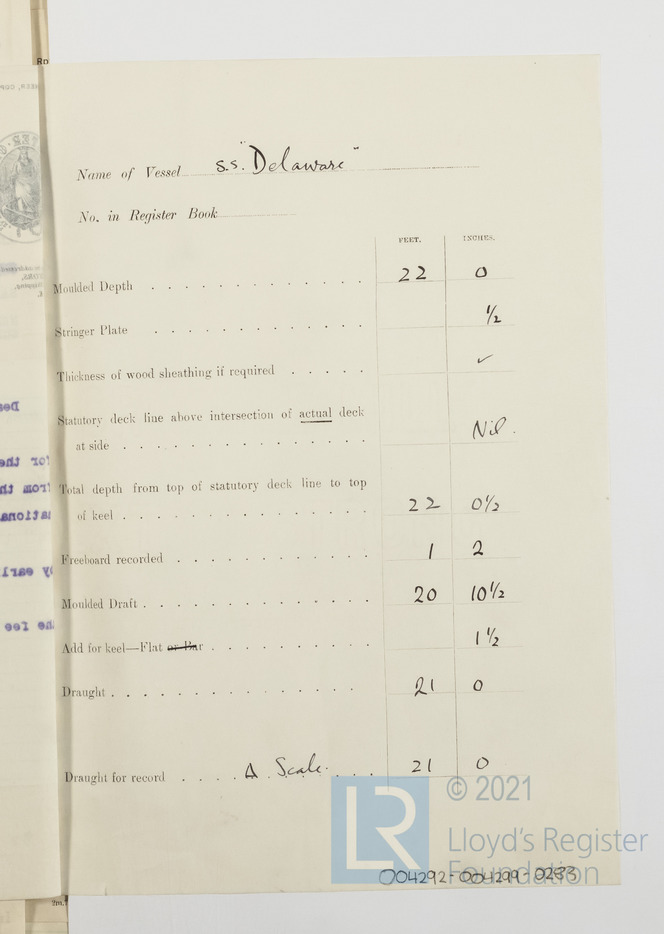 Name of Vessel S.S. "Delaware"
No. in Register Book
FEET. INCHES.
Moulded Depth 22 0
Stringer Plate ½
Thickness of wood sheathing if required ✓
Statutory deck line above intersection of actual deck
at side Nil.
Total depth from top of statutory deck line to top
of keel 22 0½
Freeboard recorded 1 2
Moulded Draft 20 10½
Add for keel—Flat or Bar 1½
Draught 21 0
Draught for record Δ Scale. 21 0
LR
© 2021
Lloyd's Register
Foundation
004292-004299-0233